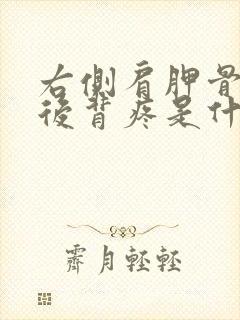 右側肩胛骨
後背疼是什
霽月輕輕